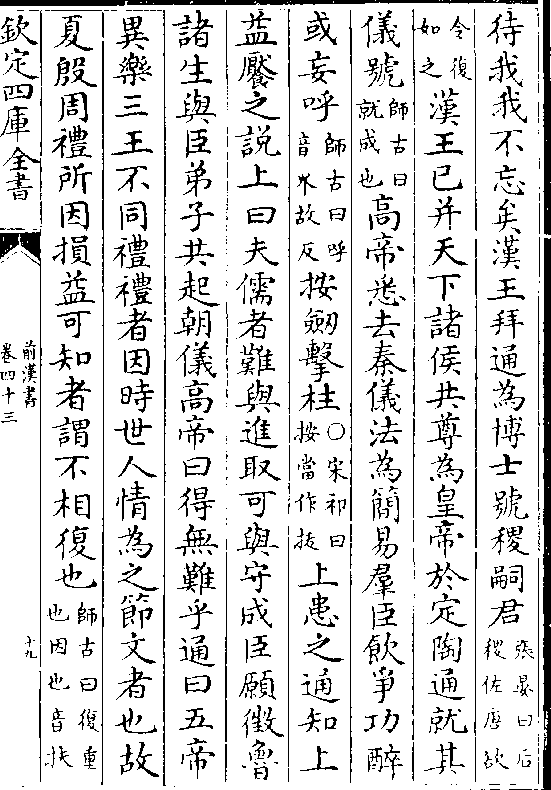 待我我不忘矣漢王拜通為博士號稷嗣君張晏曰后稷佐唐欲
令復如之漢王已并天下諸侯共尊為皇帝於定陶通就其
儀號師古曰就成也高帝悉去秦儀法為簡易羣臣飲爭功醉
或妄呼師古曰呼音火故反按劒擊柱○宋祁曰按當作拔上患之通知上
益饜之說上曰夫儒者難與進取可與守成臣願徵魯
諸生與臣弟子共起朝儀高帝曰得無難乎通曰五帝
異樂三王不同禮禮者因時世人情為之節文者也故
夏殷周禮所因損益可知者謂不相復也師古曰復重也因也音扶
欽定四庫全書
前漢書
卷四十三
十九